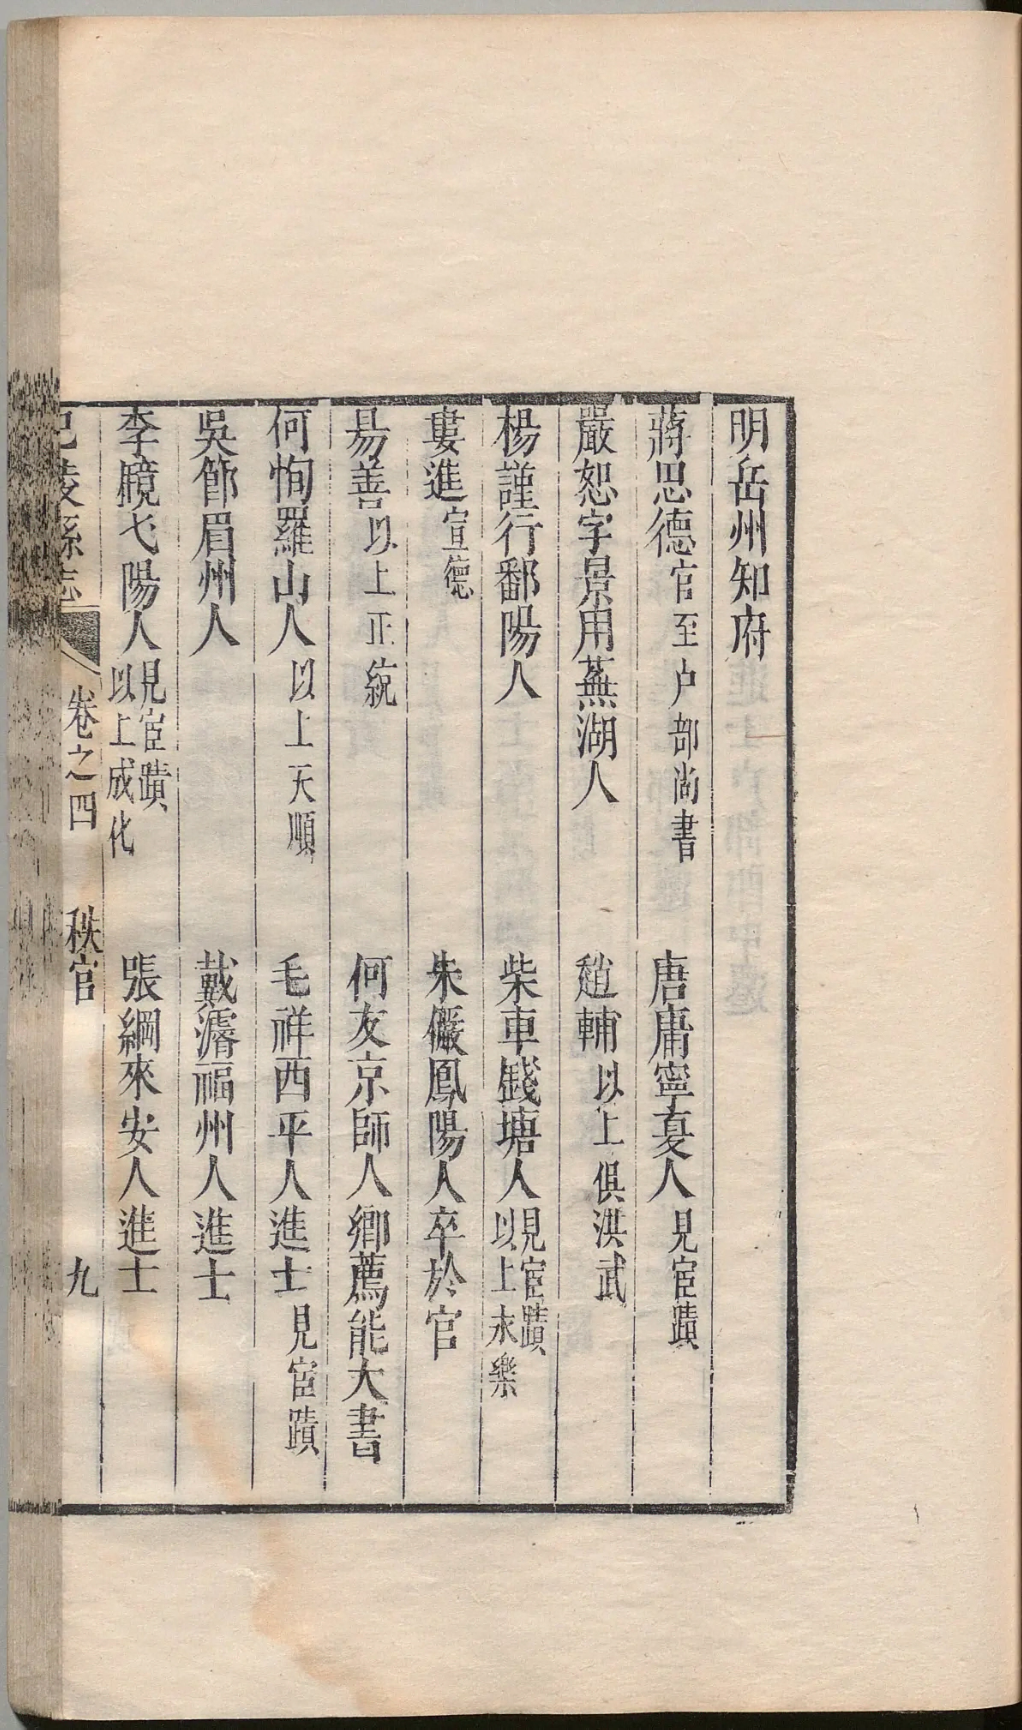 明岳州知府
蔣思德官至户部尚書 唐庸寧夏人見宦蹟
嚴恕字景用蕪湖人 趙輔以上俱洪武
楊謹行鄱陽人 柴車錢塘人見宦蹟以上永樂
婁進宣德 朱儼鳳陽人卒於官
易善以上正統 何友京師人鄉薦能大書
何恂羅山人以上天順 毛祥西平人進士見宦蹟
吳節眉州人 戴濬福州人進士
李鏡弋陽人見宦蹟以上成化 張綱來安人進士
巴陵縣志 卷之四 秩官 九